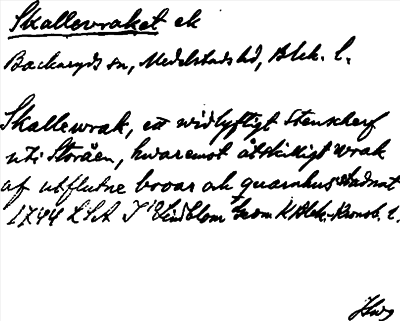 Skallevraket ek
Backaryds sn, Medelstads hd, Blek. l.
Skallewrak, ett widlyftigt Stenskerf
uti Storåen, hwaremot åtskilligt wrak
af utflutne broar ok quarnhus stadnat
1744 LSA J Lindblom Grom K Blek.-Kronob. l.